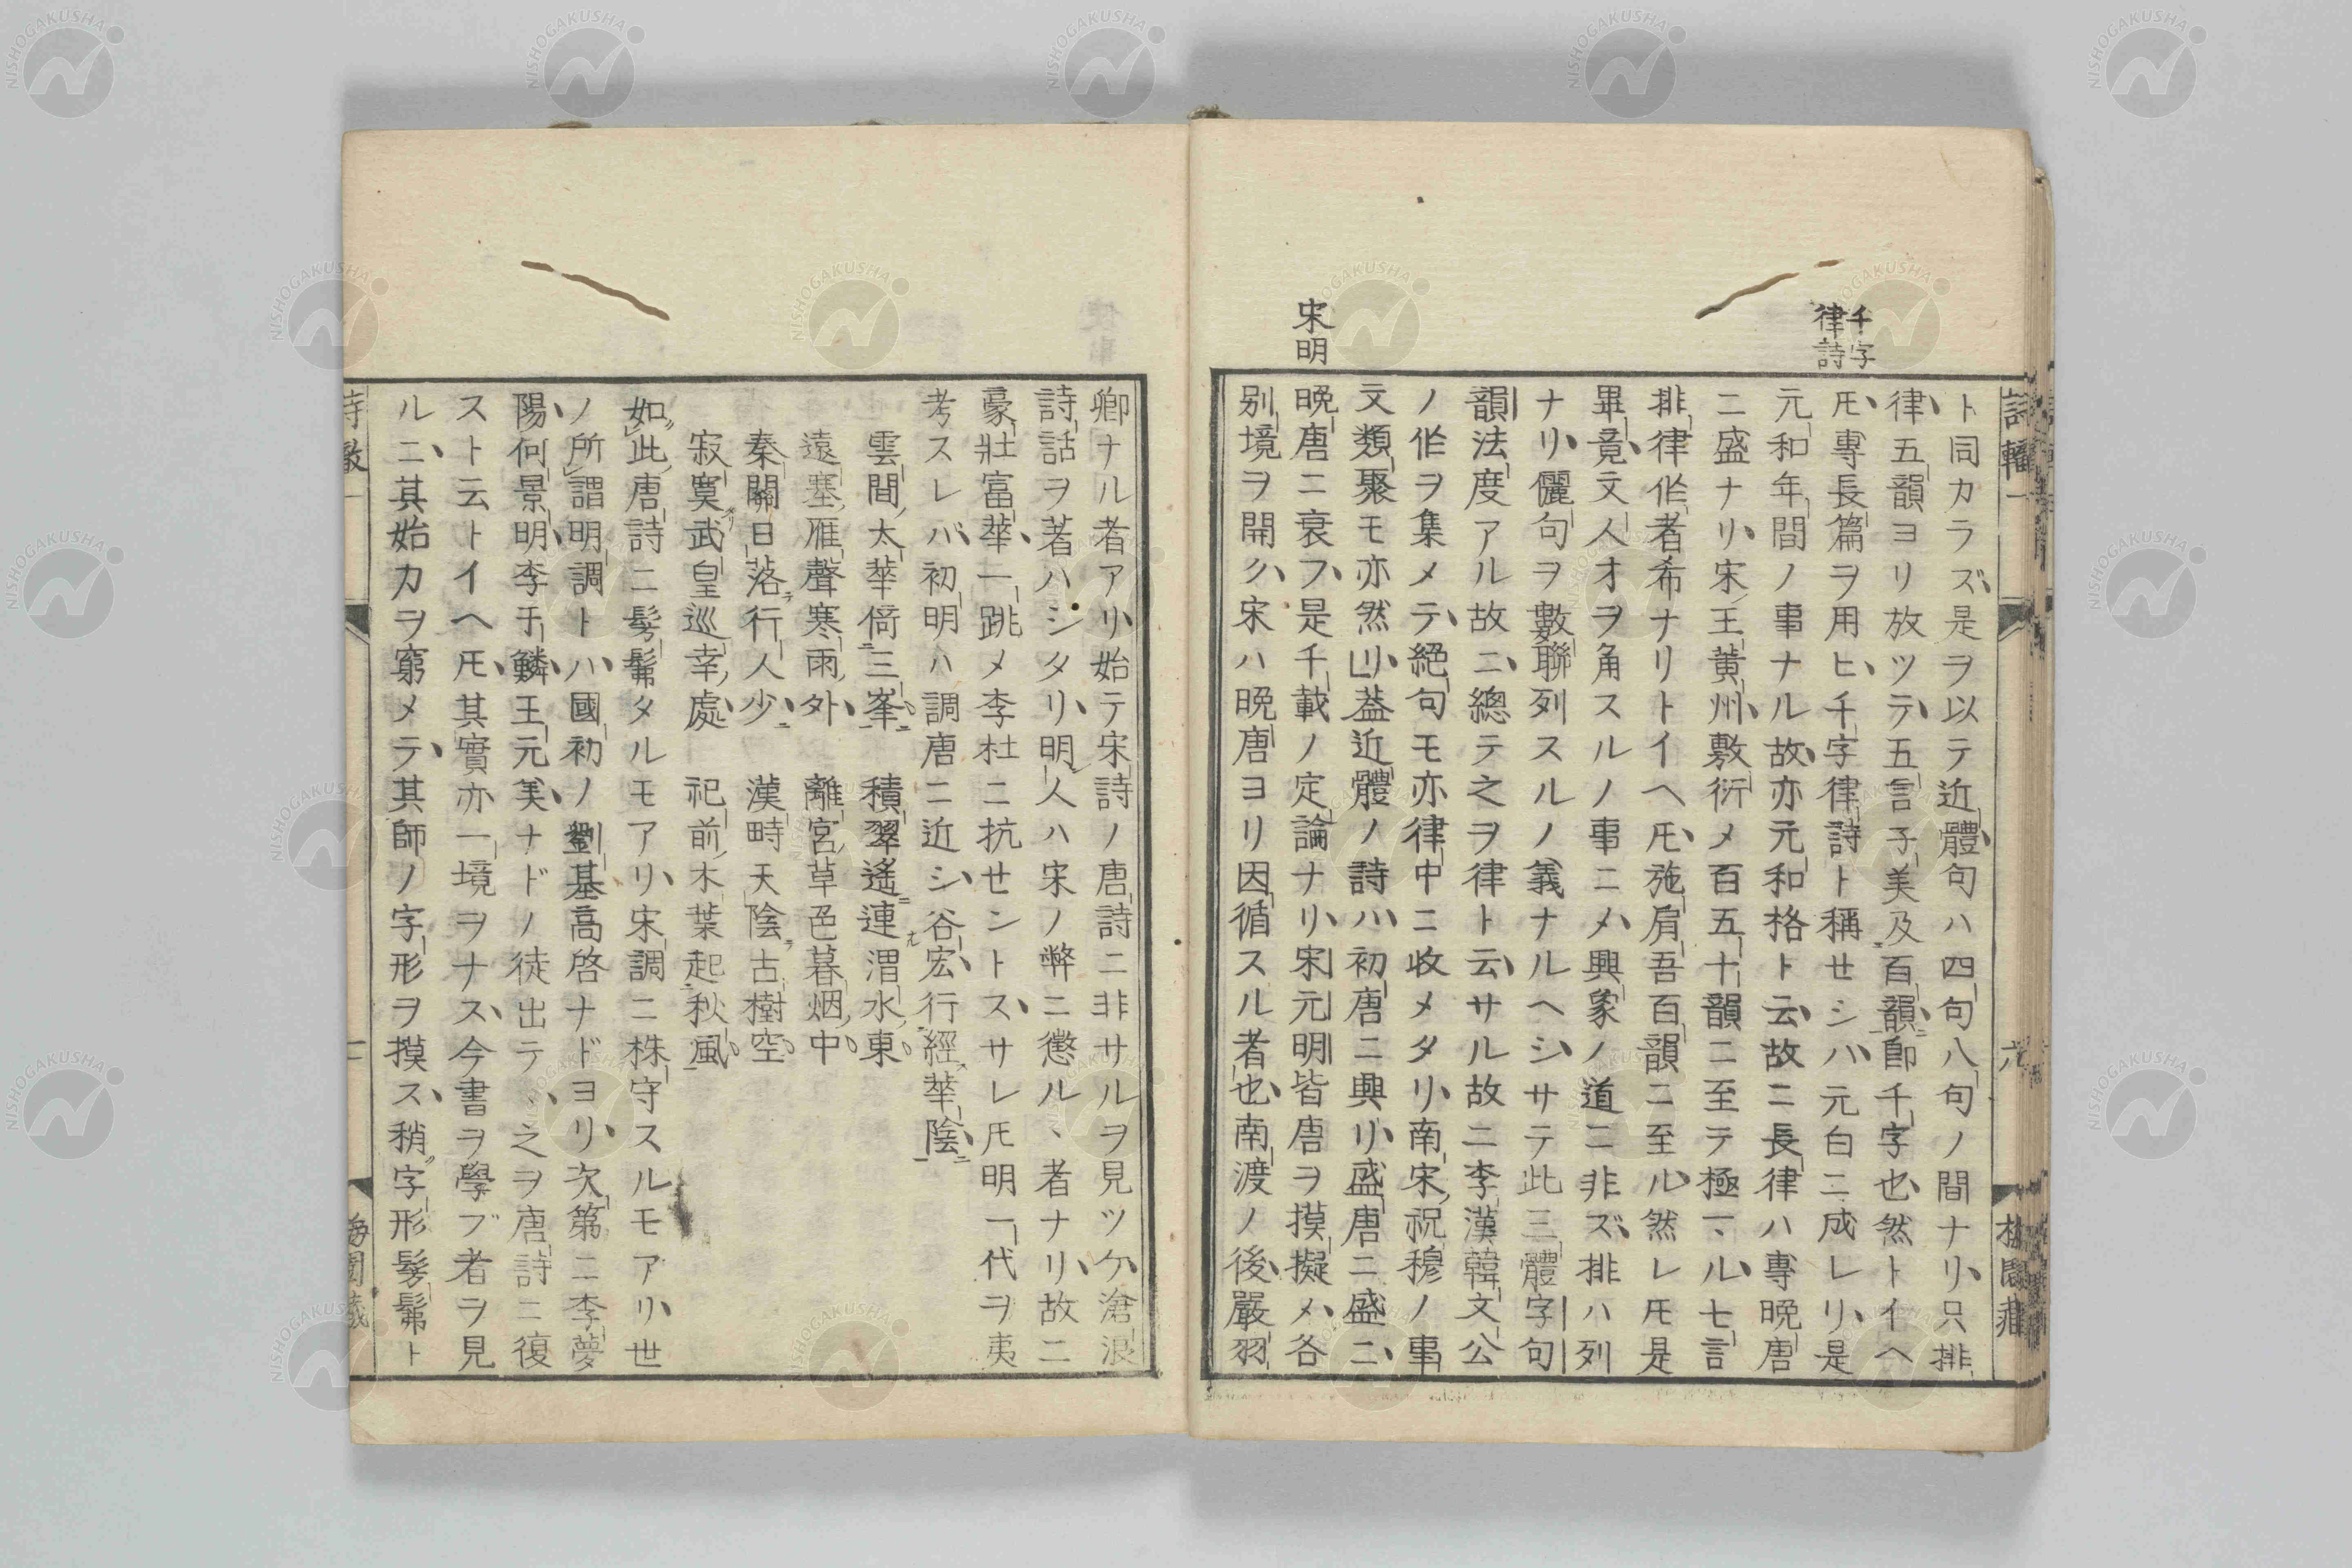 千字
律詩
宋明
ト同カラズ是ヲ以テ近體句ハ四句八句ノ間ナリ只排
律五韻ヨリ放ツテ五言子美及百韻即千字也然トイヘ
𪜈專長篇ヲ用ヒ千字律詩ト稱セシハ元白ニ成レリ是
元和年間ノ事ナル故亦元和格ト云故ニ長律ハ專晩唐
ニ盛ナリ宋王黃州敷衍メ百五十韻ニ至テ極一ヽル七言
排律作者希ナリトイヘ𪜈施肩吾百韻ニ至ル然レ𪜈是
畢竟文人才ヲ角スルノ事ニメ興象ノ道ニ非ズ排ハ列
ナリ儷句ヲ數聯列スルノ義ナルヘシサテ此三體字句
韻法度アル故ニ總テ之ヲ律ト云サル故ニ李漢韓文公
ノ作ヲ集メテ絕句モ亦律中ニ收メタリ南宋祝穆ノ事
文類聚モ亦然リ蓋近體ノ詩ハ初唐ニ興リ盛唐ニ盛ニ
晩唐ニ衰フ是千載ノ定論ナリ宋元明皆唐ヲ摸擬メ各
別境ヲ開ク宋ハ晩唐ヨリ因循スル者也南渡ノ後嚴羽
卿ナル者アリ始テ宋詩ノ唐詩ニ非サルヲ見ツケ滄浪
詩話ヲ著ハシタリ明人ハ宋ノ弊ニ懲ルヽ者ナリ故ニ
豪壯富華一跳メ李杜ニ抗センドスサレ𪜈明一代ヲ夷
考スレバ初明ハ調唐ニ近シ谷宏行經華陰
雲間太華倚三峯 積翠遙連渭水東
遠塞雁聲寒雨外 離宮草色暮烟中
秦關日落行人少 漢畤天陰古樹空
寂寞武皇巡幸處 祀前木葉起秋風
如此唐詩ニ髣髴タルモアリ宋調ニ株守スルモアリ世
ノ所謂明調トハ國初ノ劉基高啓ナドヨリ次第ニ李夢
陽何景明李于鱗王元美ナドノ徒出テヽ之ヲ唐詩ニ復
スト云トイヘ𪜈其實亦一境ヲナス今書ヲ學ブ者ヲ見
ルニ其始カヲ窮メテ其師ノ字形ヲ摸ス稍字形髣髴ト